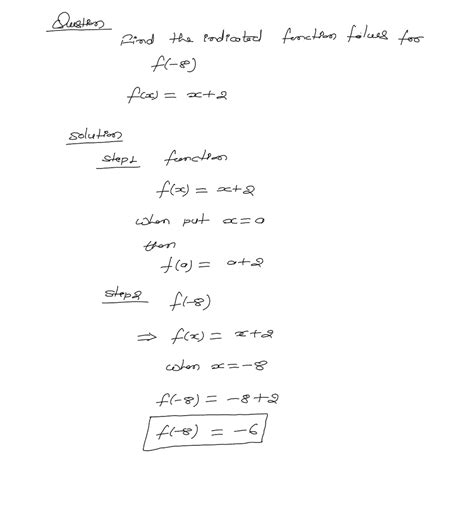 Question
Find the indicated function falues for
f(-8)
f(x) = x+2
solution
step1 function
f(x) = x+2
when put x=a
then
f(a) = a+2
step2 f(-8)
⇒ f(x) = x+2
when x=-8
f(-8) = -8+2
f(-8) = -6